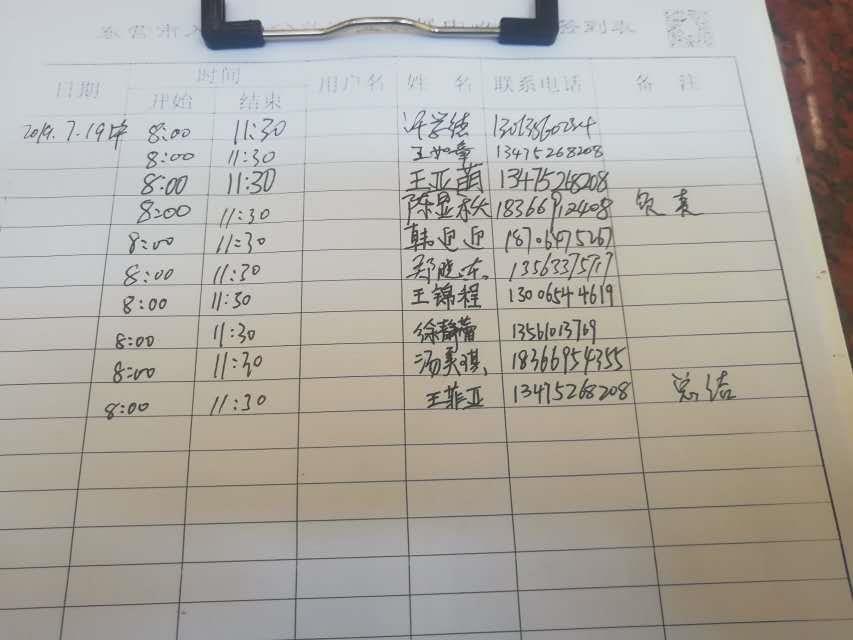 签到表
日期 时间 用户名 姓 名 联系电话 备 注
开始 结束
2019.7.19 8:00 11:30
8:00 11:30 王如章 13475268208
8:00 11:30 王亚萌 13475268208
8:00 11:30 陈显秋 18366912408
8:00 11:30 韩迎迎 18706475267
8:00 11:30 郑晓东 13563375717
8:00 11:30 王锦程 13006544619
8:00 11:30 徐静蕾 13561013769
8:00 11:30 汤美琪 18366954355
8:00 11:30 王菲亚 13475268208 总结